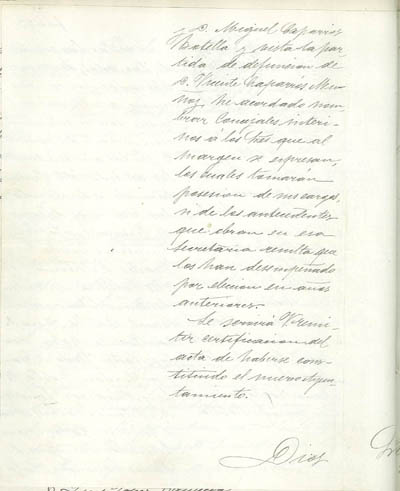 y D. Miguel Caparrós
Botella y vista la par-
tida de defuncion de
D. Vicente Caparrós Mu-
ñoz, he acordado nom-
brar Concejales interi-
nos á los tres que al
margen se espresan,
los cuales tomarán
posesion de sus cargos,
si de los antecedentes
que obran en esa
Secretaria resulta que
los han desempeñado
por eleccion en años
anteriores.
Se servirá V. remi-
tir certificacion del
acta de haberse cons-
tituido el nuevo Ayun-
tamiento.
Dios